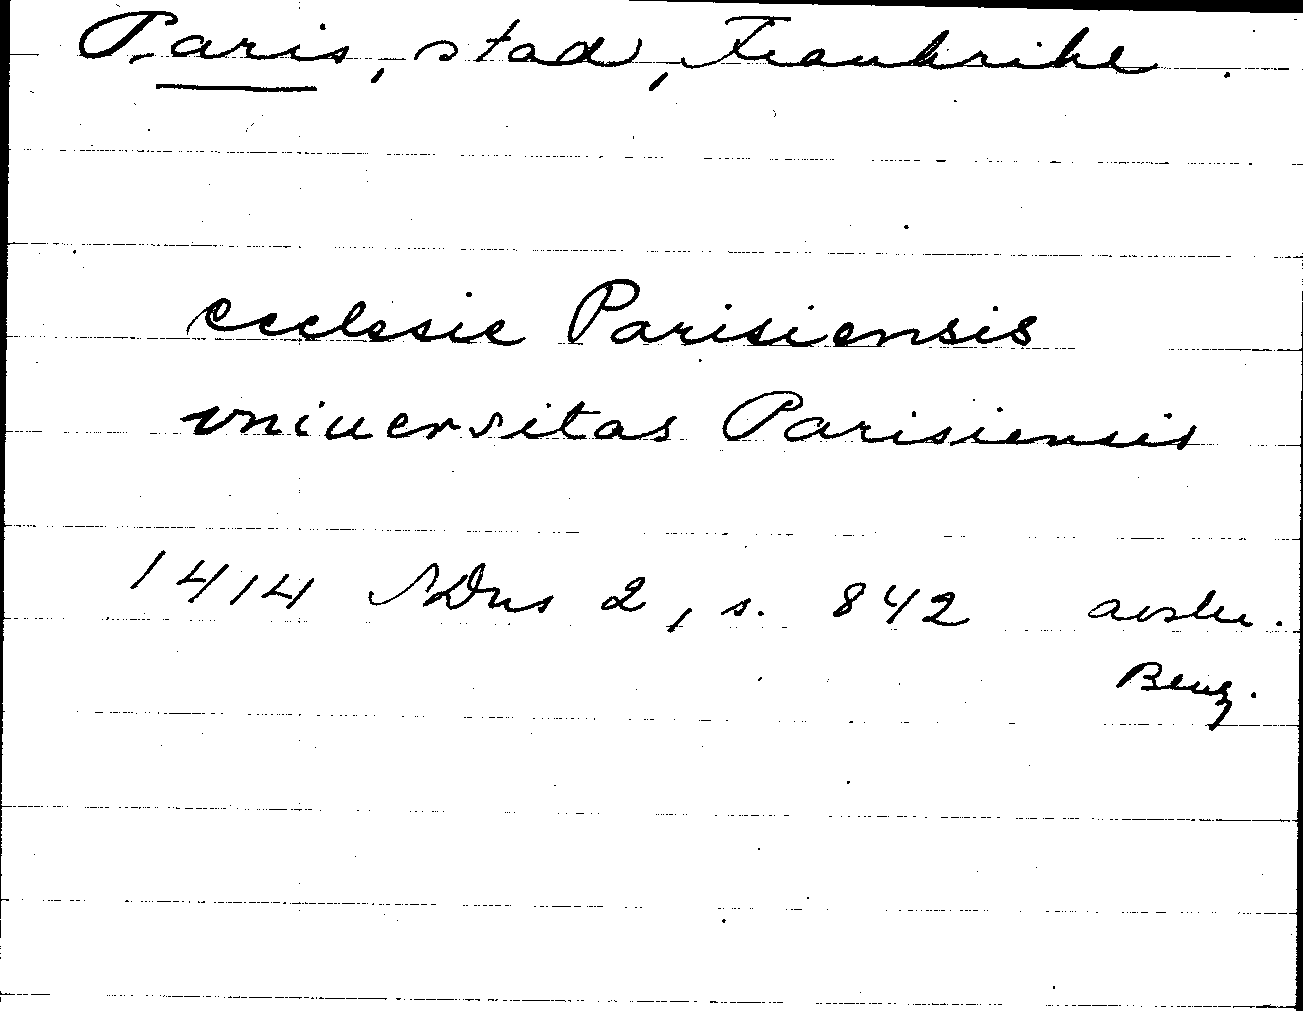 Paris, stad, Frankrike.
ecclesie Parisiensis
vniuersitas Parisiensis
1414 SDns 2, s. 842 avskr.
Beng.